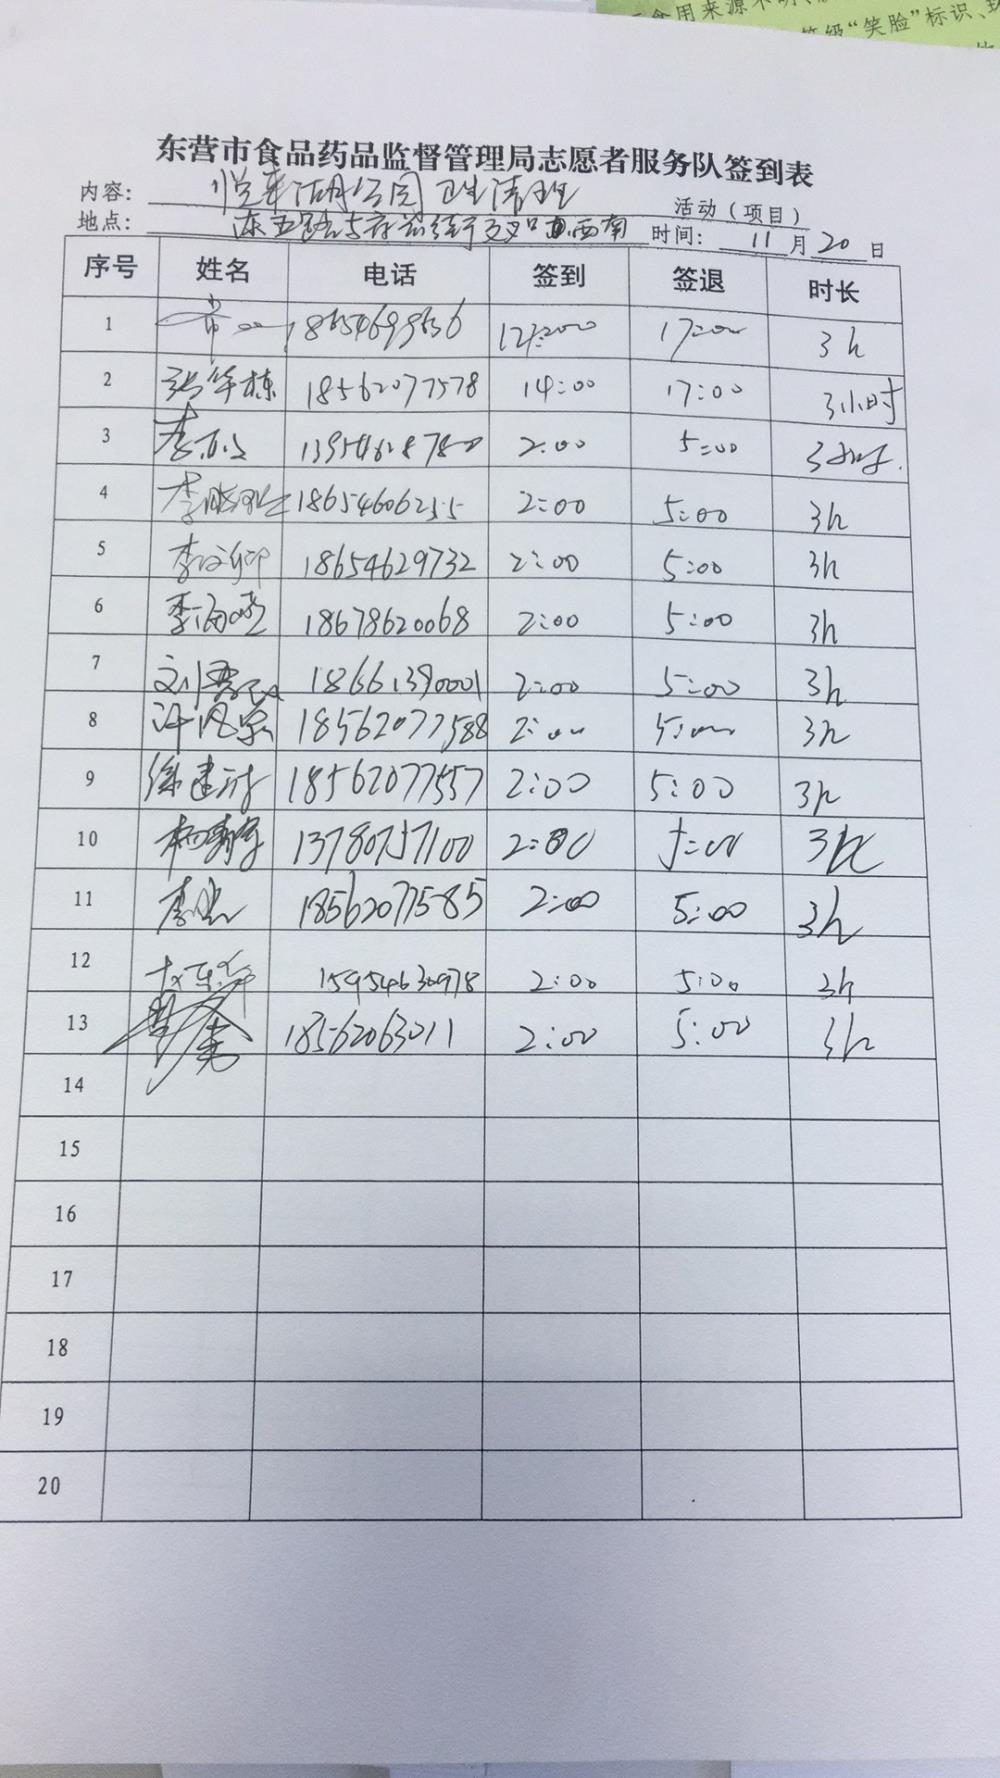 食用来源不明、
等级“笑脸”标识、
东营市食品药品监督管理局志愿者服务队签到表
内容：悦来湖公园卫生清理 活动（项目）
地点：东五路与府前街交叉口西南 时间：11月20日
序号 姓名 电话 签到 签退 时长
1 18654699636 17:00 3h
2 18562077578 14:00 17:00 3小时
3 2:00 5:00 3小时.
4 18654606255 2:00 5:00 3h
5 18654629732 2:00 5:00 3h
6 李海晓 18678620068 2:00 5:00 3h
7 18661390001 2:00 5:00 3h
8 18562077588 2:00 5:00 3h
9 徐建 18562077557 2:00 5:00 3h
10 13780757100 2:00 5:00 3h
11 18562077585 2:00 5:00 3h
12 15954630978 2:00 5:00 3h
13 18562063011 2:00 5:00 3h
14
15
16
17
18
19
20